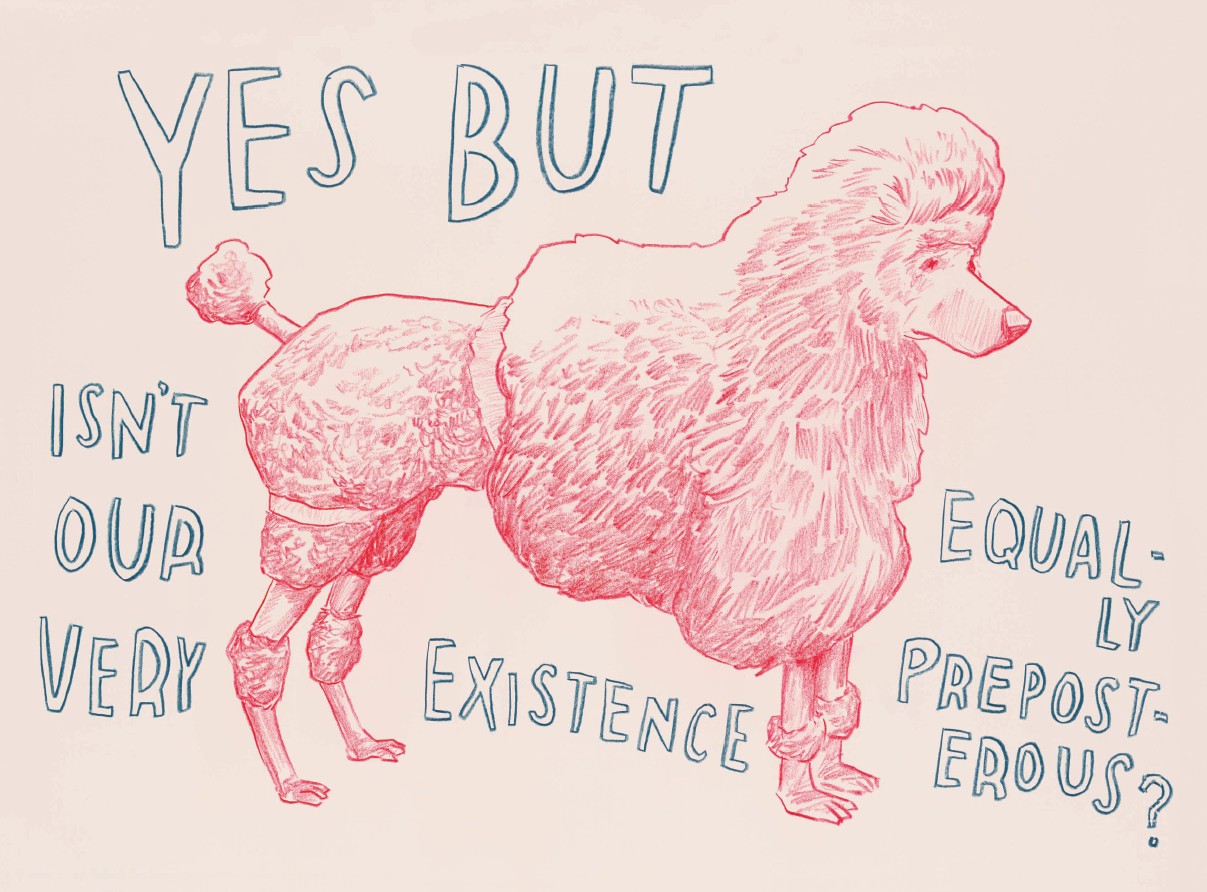 YES BUT
ISN'T
OUR
VERY
EXISTENCE
EQUAL-
LY
PREPOST-
EROUS?